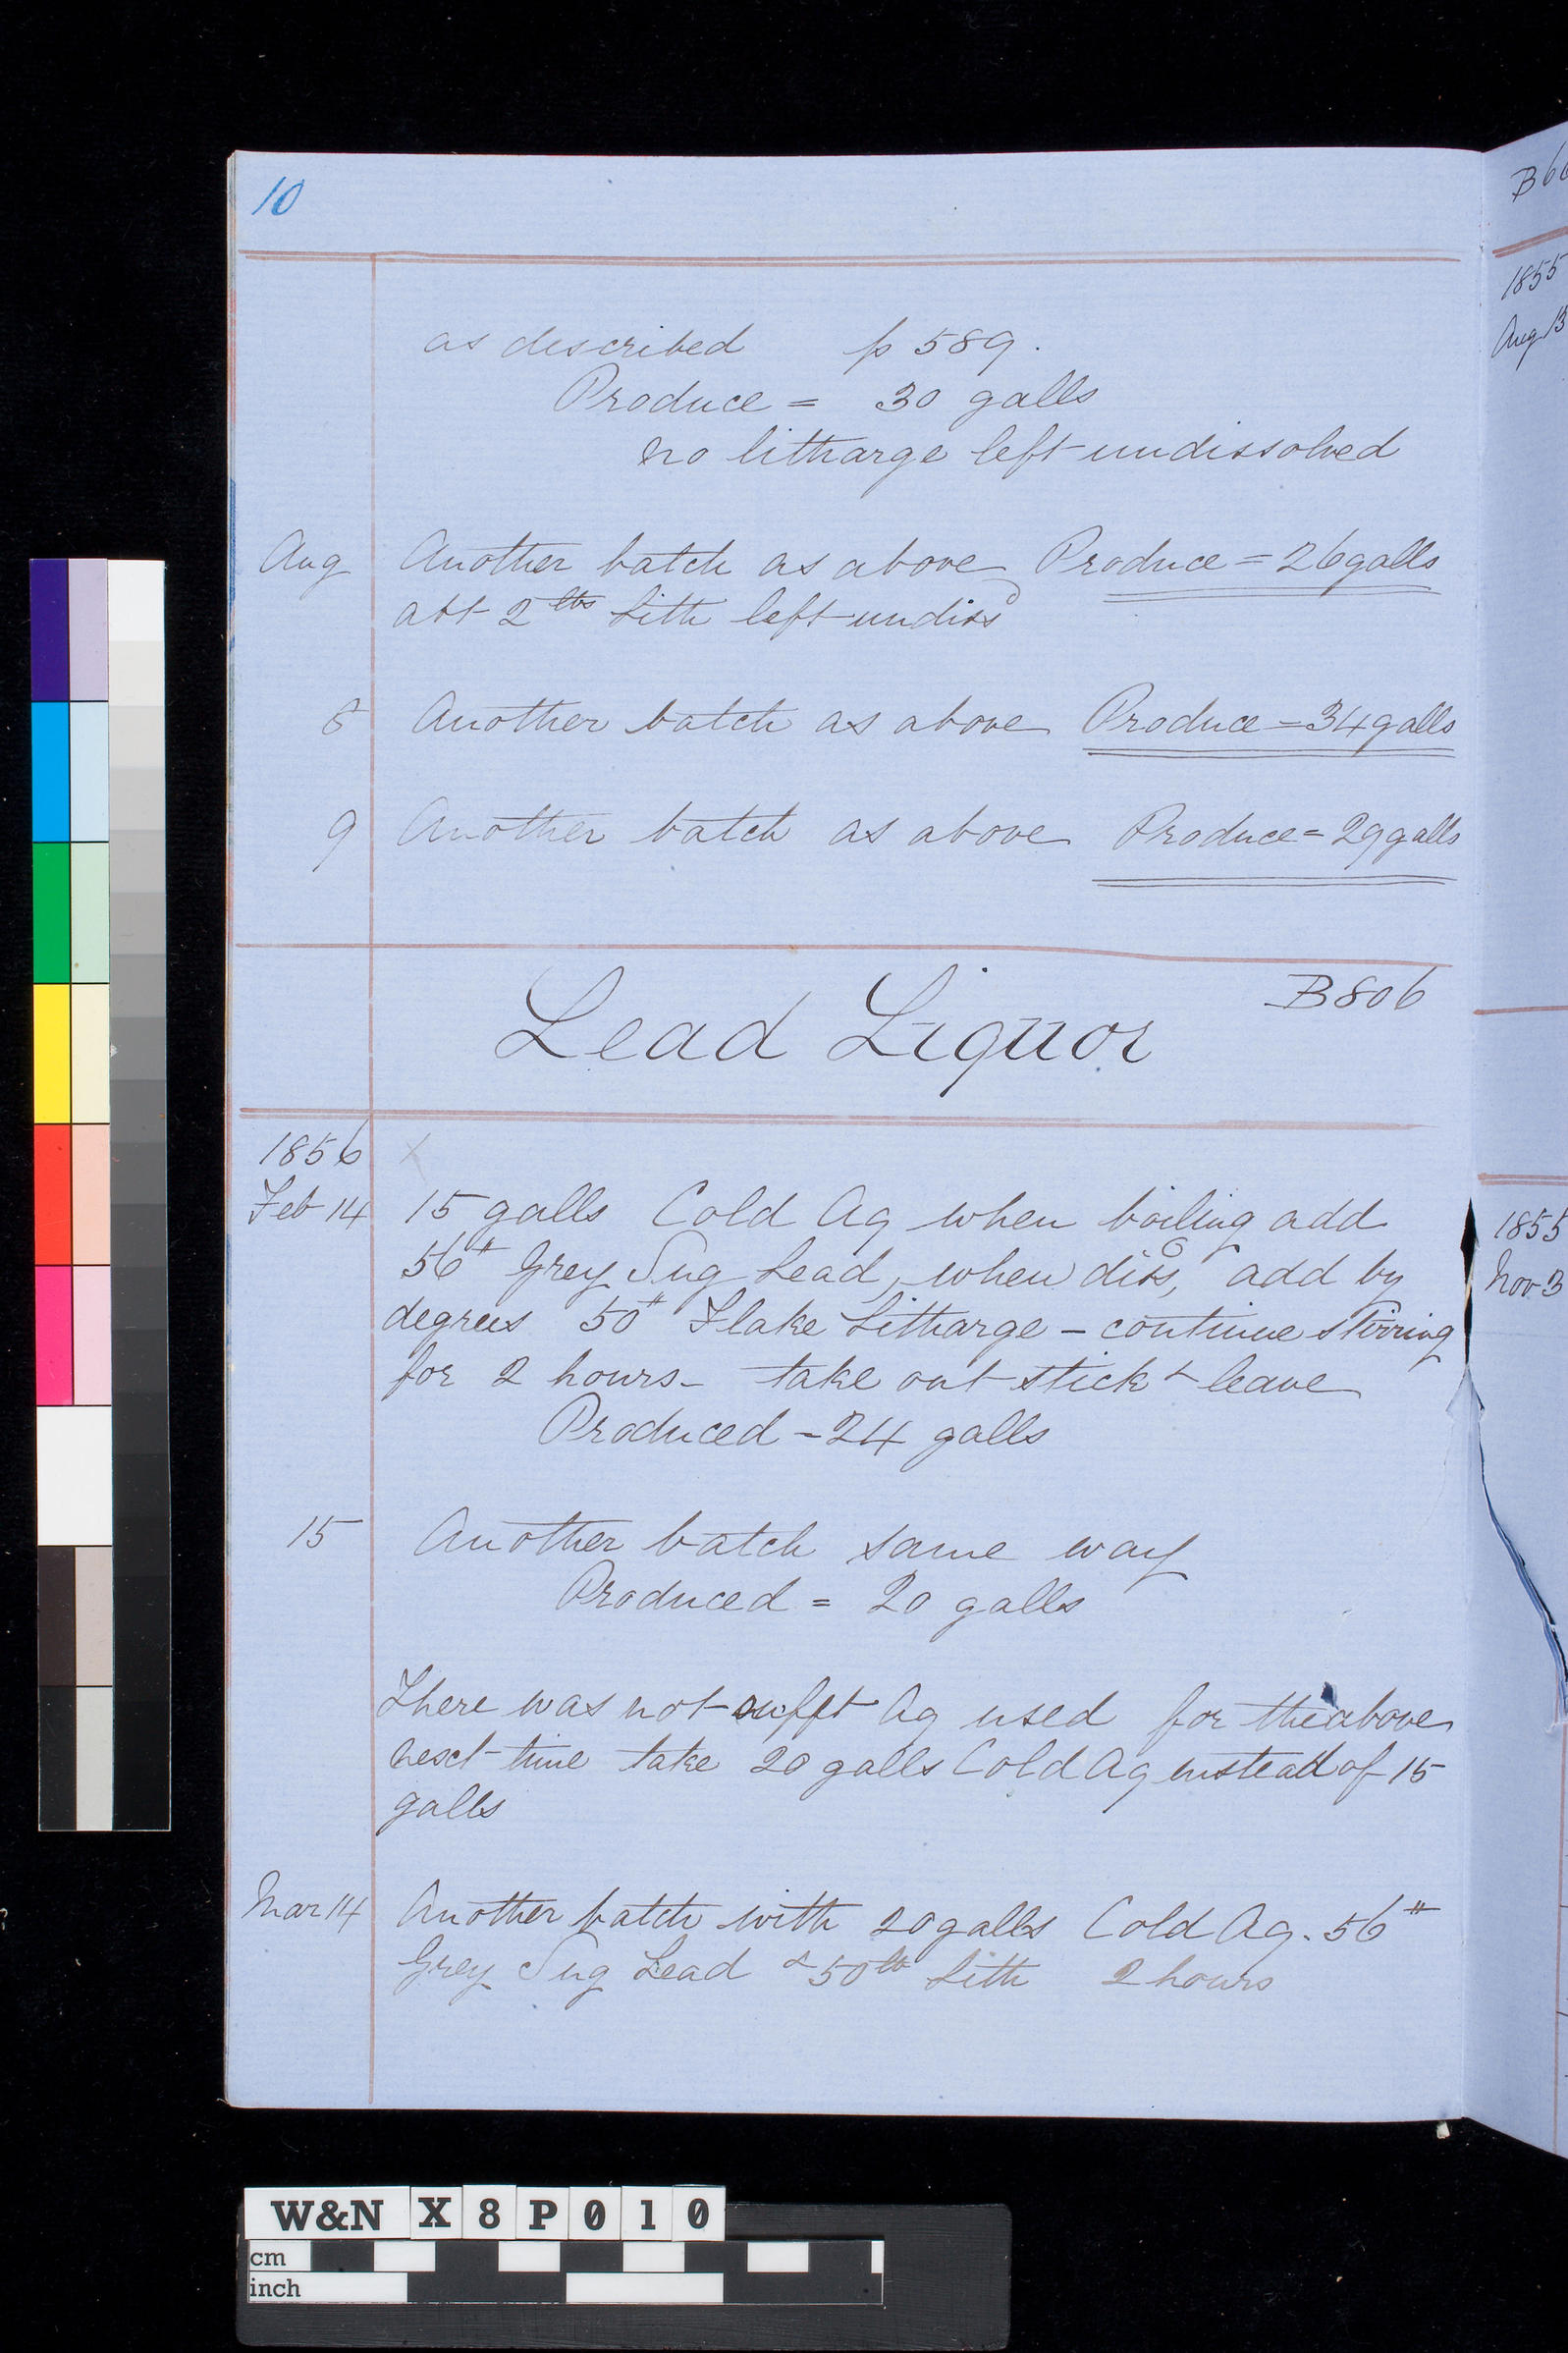 10
as described p 589.
Produce = 30 galls
no litharge left undissolved
Aug Another batch as above Produce = 26 galls
abt 2 lbs Lith left undissd
8 Another batch as above Produce = 34 galls
9 Another batch as above Produce = 29 galls
B806
Lead Liquor
1856 X
Feb 14 15 galls Cold Aq when boiling add
56# Grey Sug Lead, when diss, add by
degrees 50# Flake Litharge - continue stirring
for 2 hours - take out stick & leave
Produced - 24 galls
15 Another batch same way
Produced = 20 galls
There was not sufft Aq used for the above
next time take 20 galls Cold Aq instead of 15
galls
Mar 14 Another batch with 20 galls Cold Aq. 56#
Grey Sug Lead & 50 lb Lith 2 hours
1855
Aug 13
1855
Nov 3
W&N X8P010
cm
inch